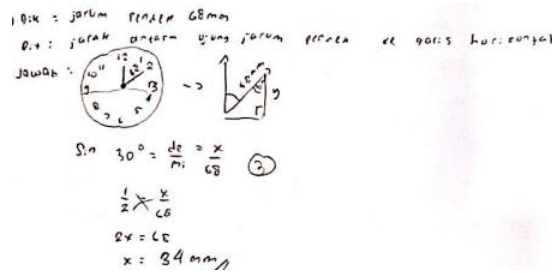 Dik : jarum pendek 68mm
Dit : jarak antara ujung jarum pendek ke garis horizontal
Jawab :
12
2
3
->
68mm
y
Sin 30° = de/mi = x/68
3
1/2 = x/68
2x = 68
x = 34 mm